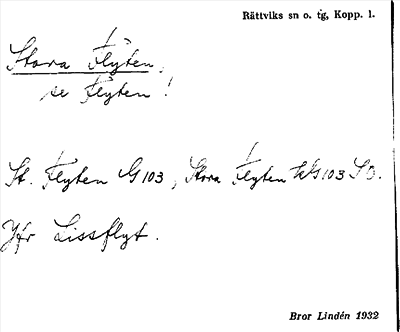 Rättviks sn o. tg, Kopp. l.
Stora Flyten,
se Flyten!
St. Flyten G 103, Stora Flyten WG 103 SO.
Jfr Lissflyt.
Bror Lindén 1932